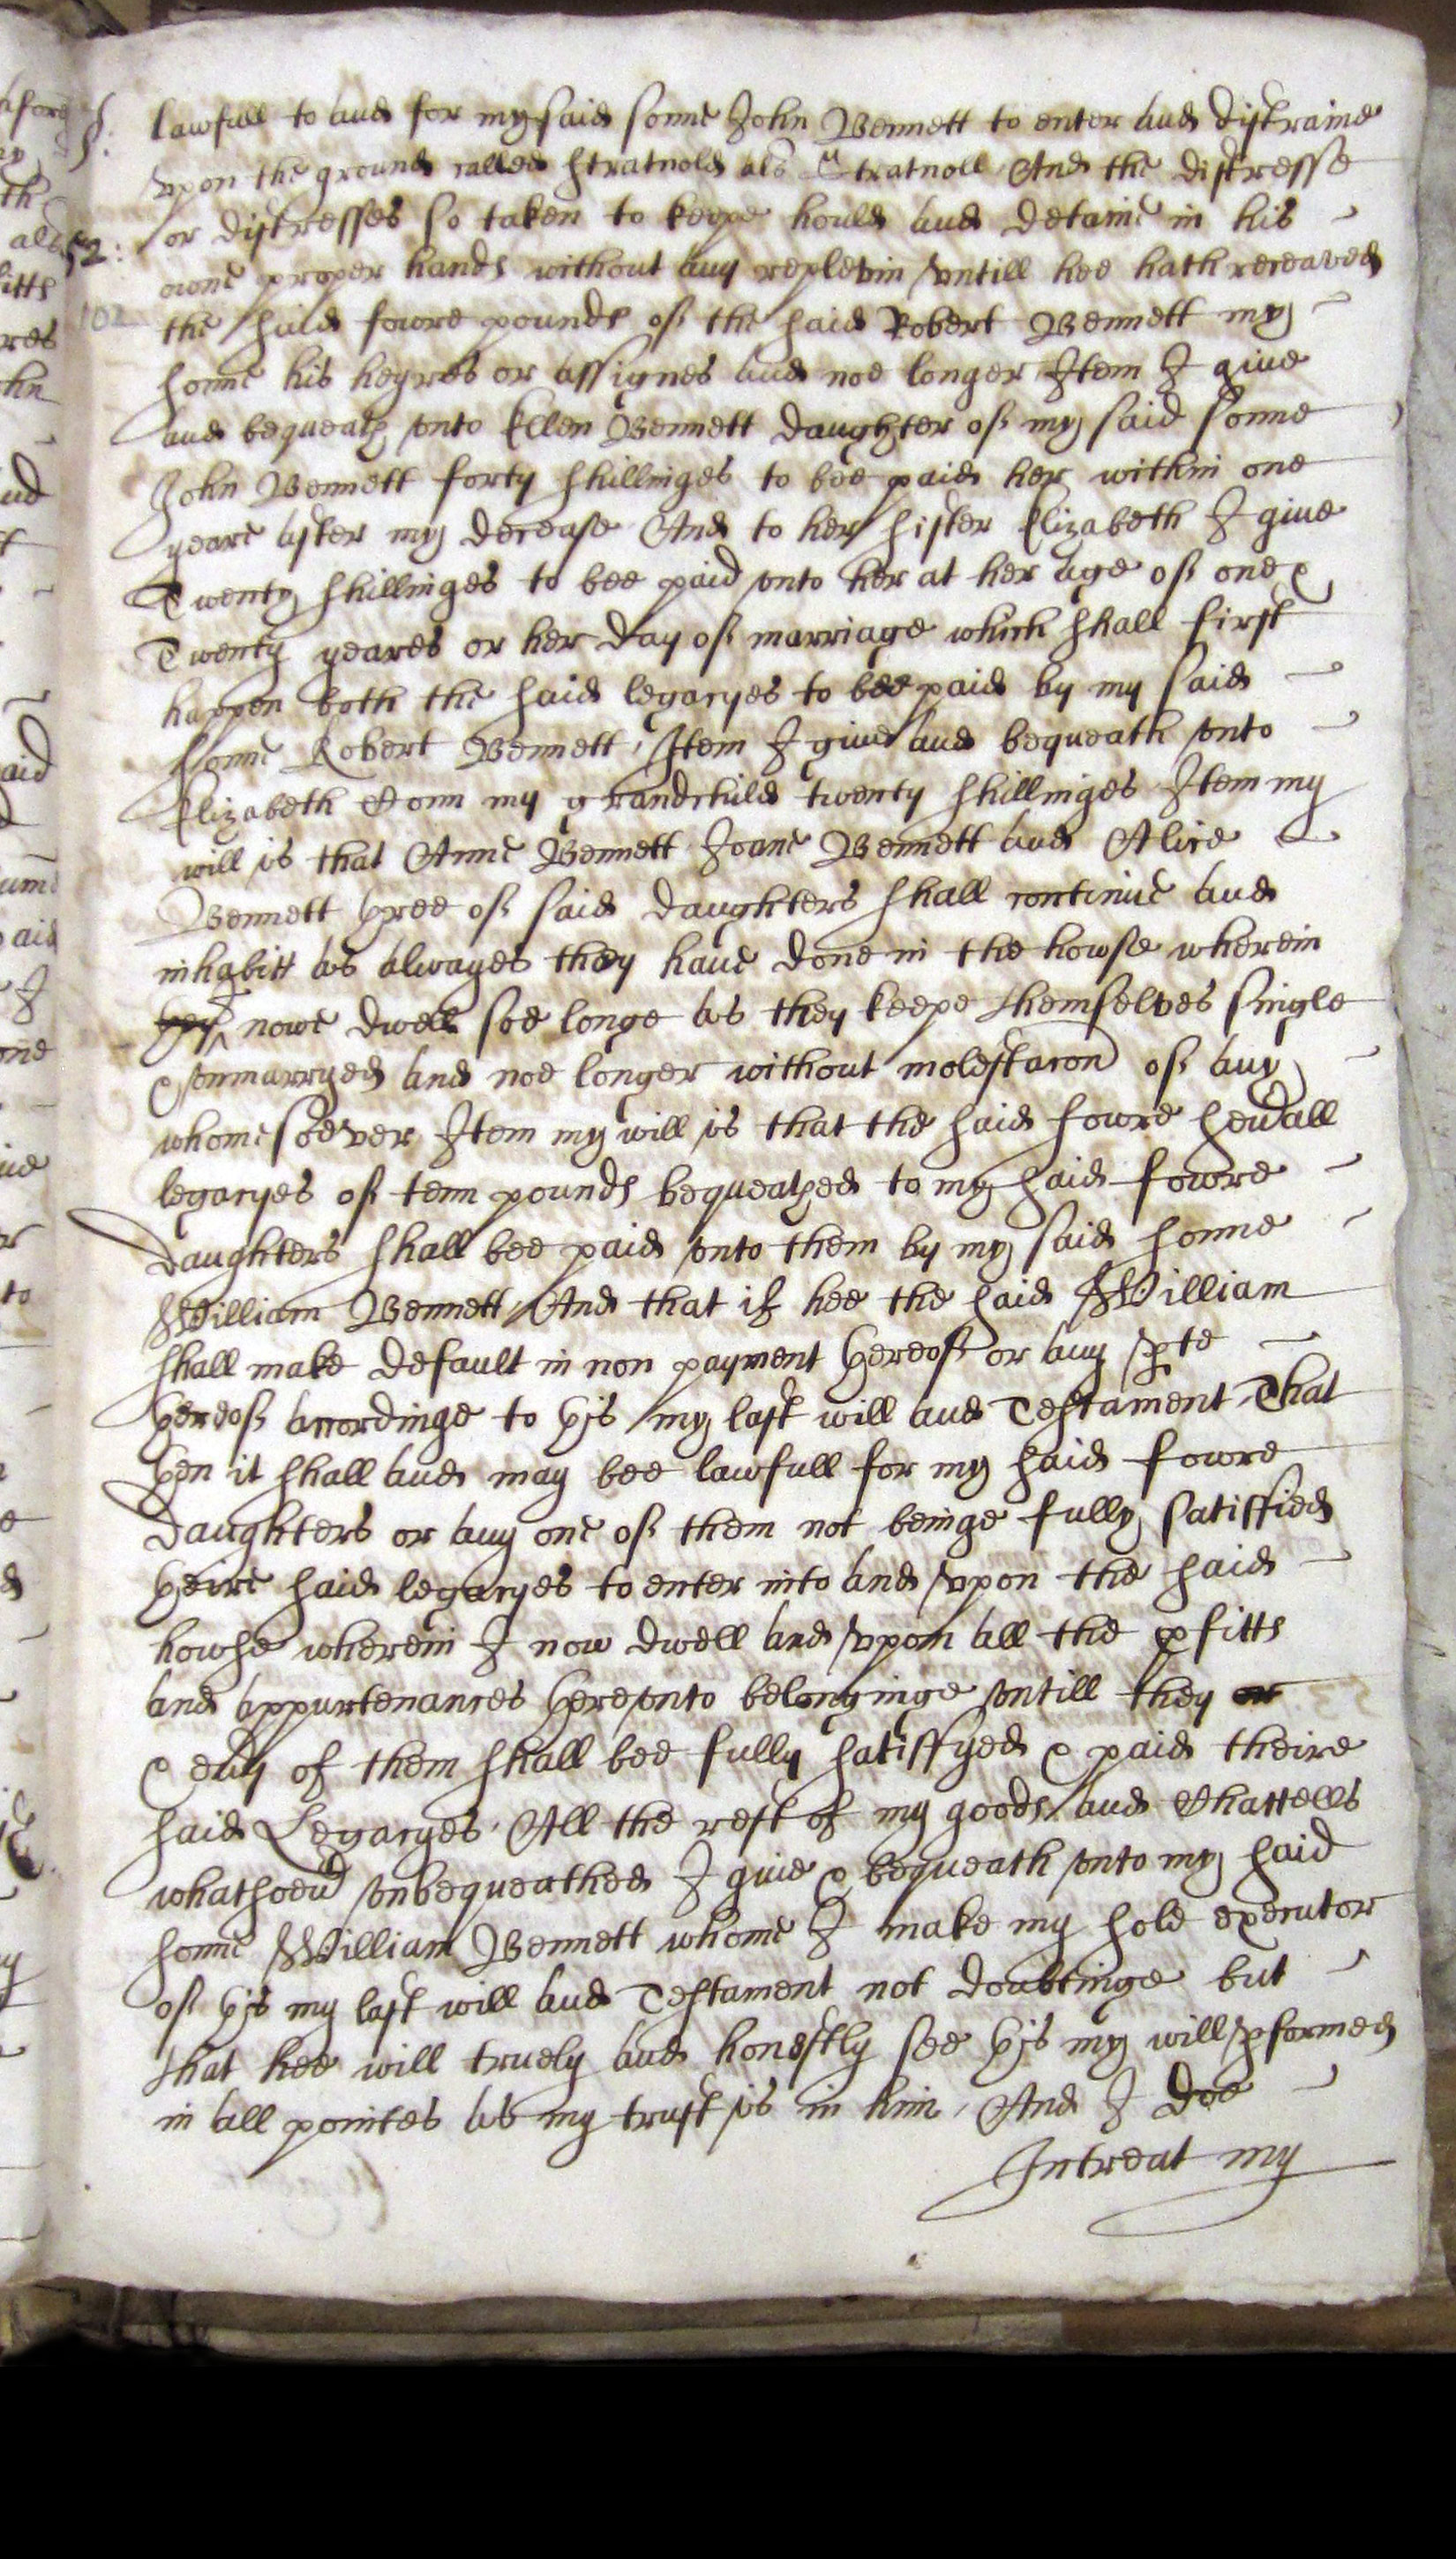 lawfull to and for my said sonne John Bennett to enter and distraine
vpon the ground called Stratnold als Stratnoll And the distresse
or distresses so taken to keepe hould and detaine in his
52:
owne proper hands without any replevin vntill hee hath receaved
102
the said fowre pounds of the said Robert Bennett my
sonne his heyres or assignes and noe longer Item I give
and bequeath vnto Ellen Bennett daughter of my said sonne
John Bennett forty shillinges to bee paid her within one
yeare after my decease And to her sister Elizabeth I give
Twenty shillinges to bee paid vnto her at her age of one &
Twenty yeares or her day of marriage which shall first
happen both the said legacyes to bee paid by my said
sonne Robert Bennett, Item I give and bequeath vnto
Elizabeth my grandchild twenty shillinges Item my
will is that Anne Bennett Joane Bennett and Alice
Bennett three of said daughters shall continue and
inhabitt as alwayes they haue done in the howse wherein
nowe dwell soe longe as they keepe themselves single
& vnmarryed and noe longer without molestacon of any
whomesoever Item my will is that the said fowre seu'all
legacyes of tenn pounds bequeathed to my said fowre
daughters shall bee paid vnto them by my said sonne
William Bennett And that if hee the said William
shall make default in non payment thereof or any pte
thereof accordinge to this my last will and Testament That
then it shall and may bee lawfull for my said fowre
daughters or any one of them not beinge fully satisfied
theire said legacyes to enter into and vpon the said
howse wherein I now dwell and vpon all the pfitts
and appurtenances therevnto belonginge vntill they or
& eu'y of them shall bee fully satisfyed & paid theire
said Legacyes, All the rest of my goods and Chattells
whatsoeu' vnbequeathed I give & bequeath vnto my said
sonne William Bennett whome I make my sole executor
of this my last will and Testament not doubtinge but
that hee will truely and honestly see this my will pformed
in all pointes as my trust is in him, And I doe
Intreat my